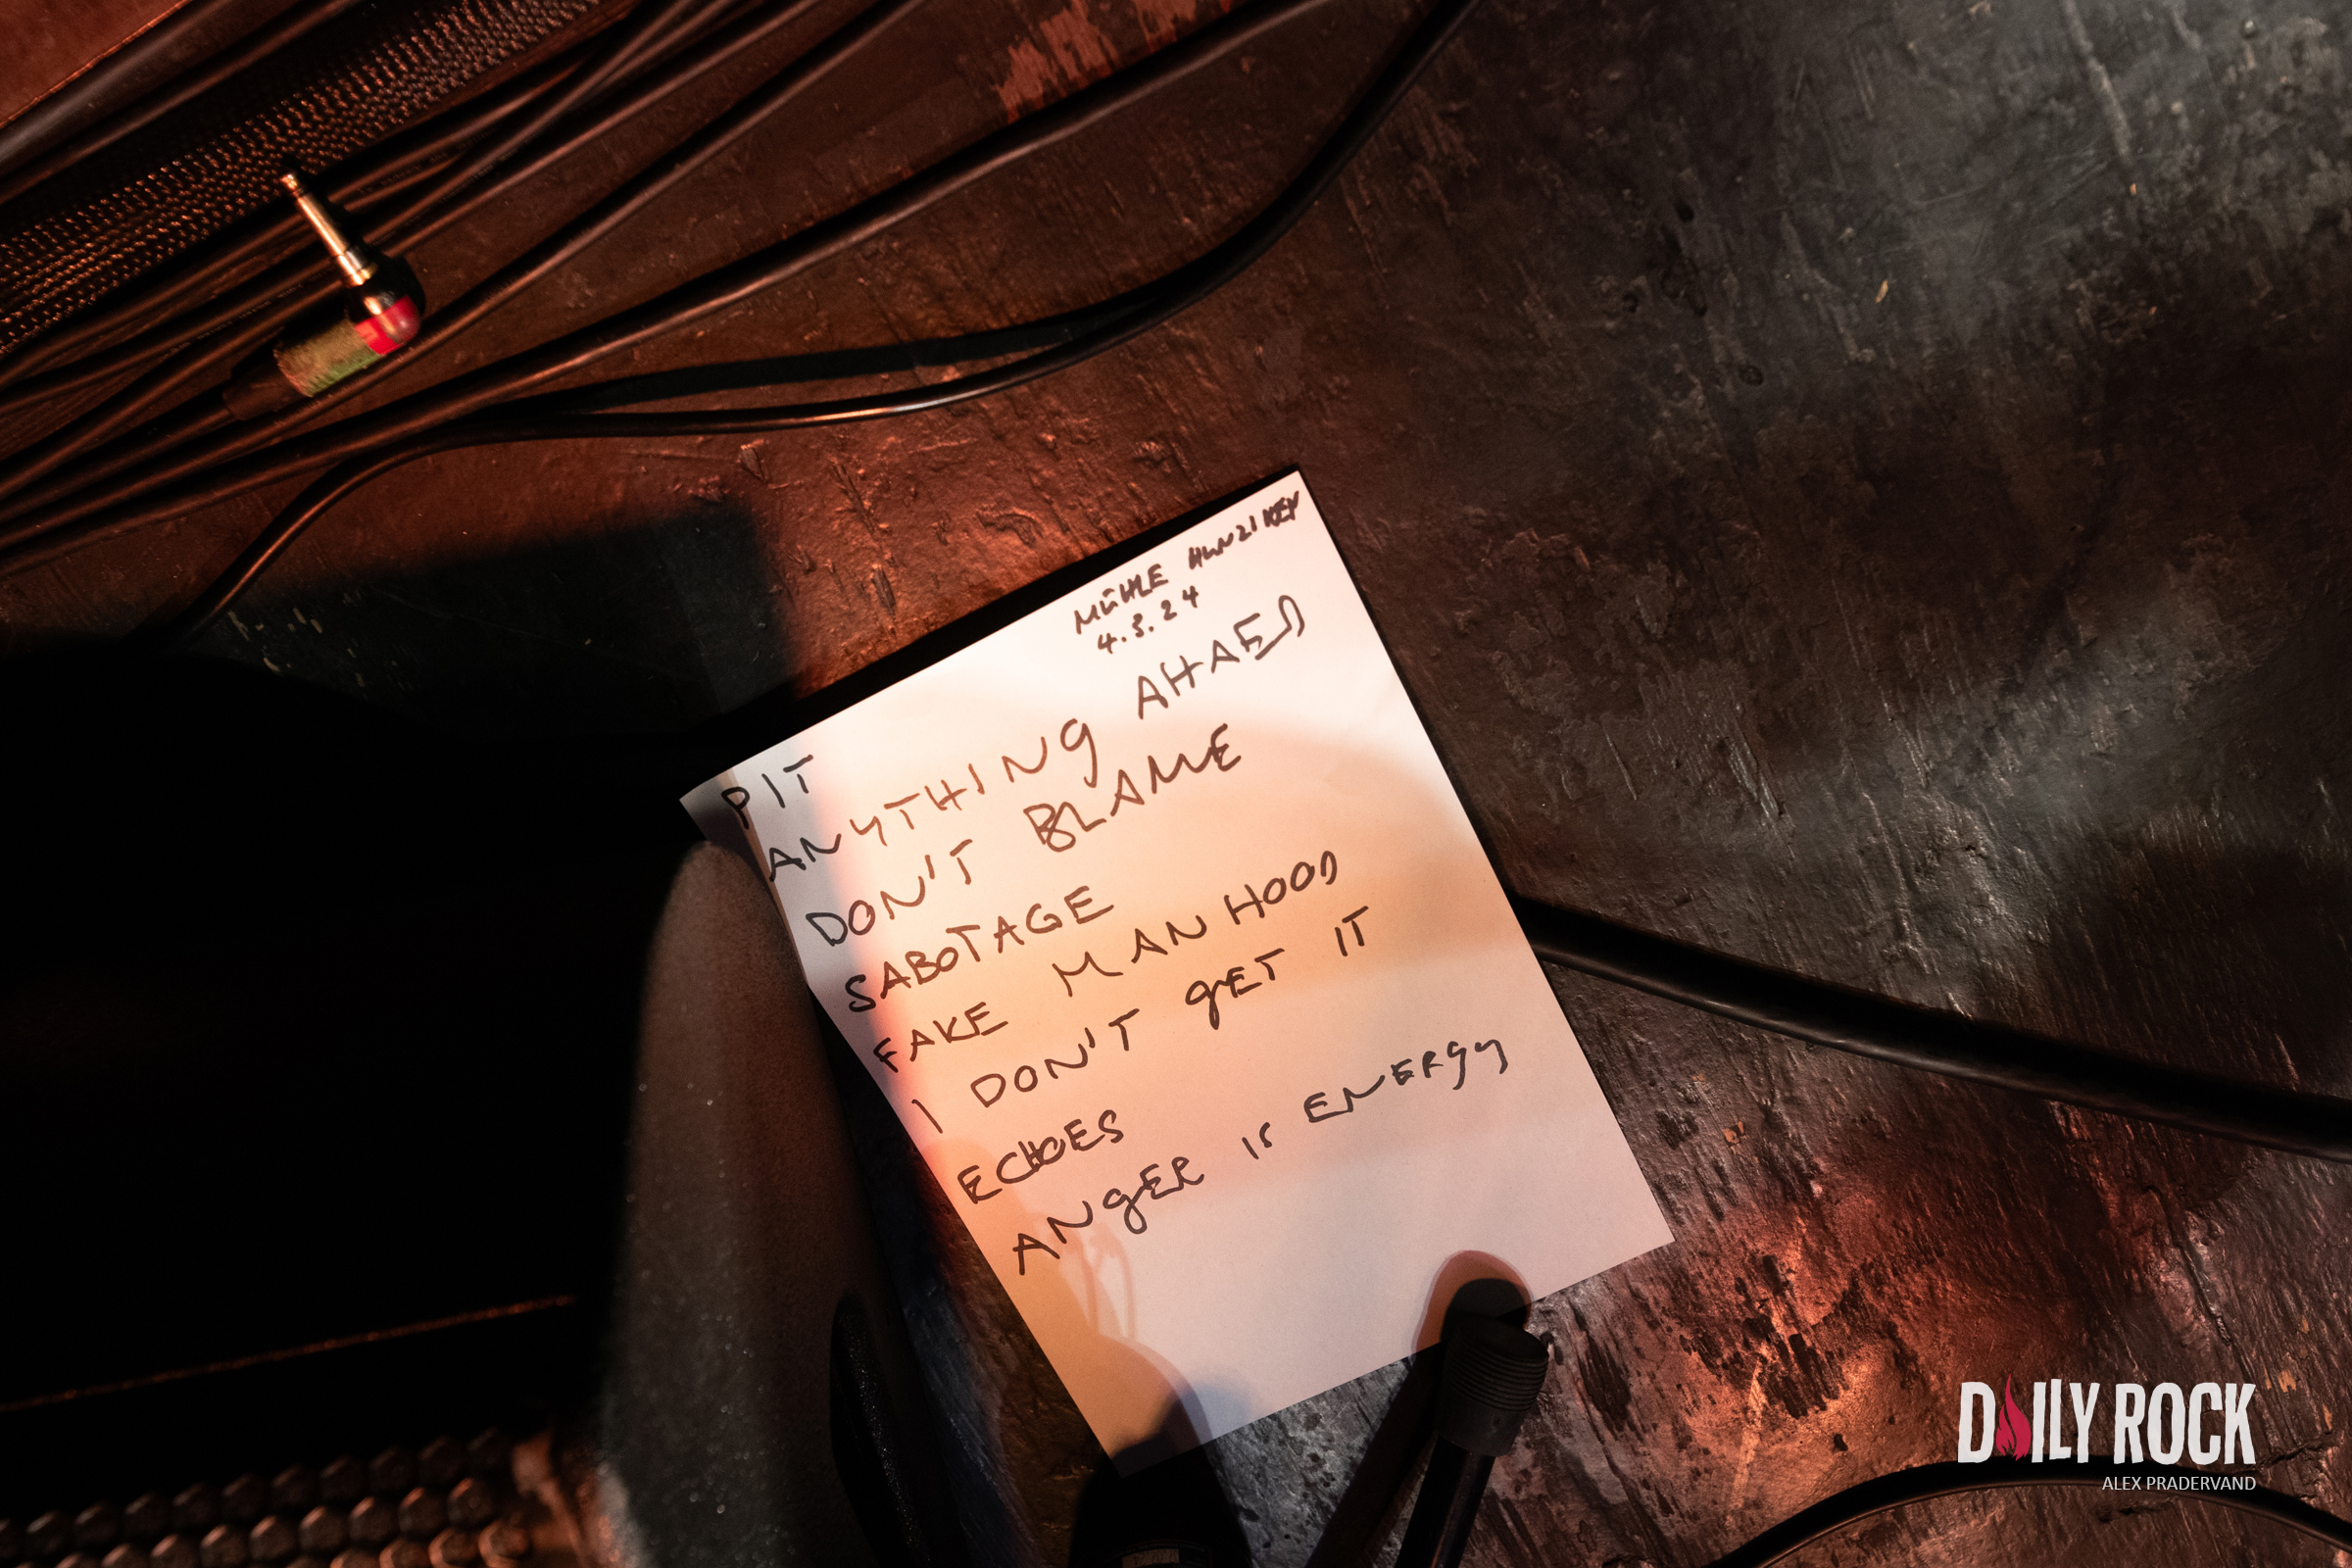 MÜHLE HUNZIKEN
4.3.24
PIT
ANYTHING AHAED
DON'T BLAME
SABOTAGE
FAKE MANHOOD
I DON'T GET IT
ECHOES
ANGER IS ENERGY
DAILY ROCK
ALEX PRADERVAND